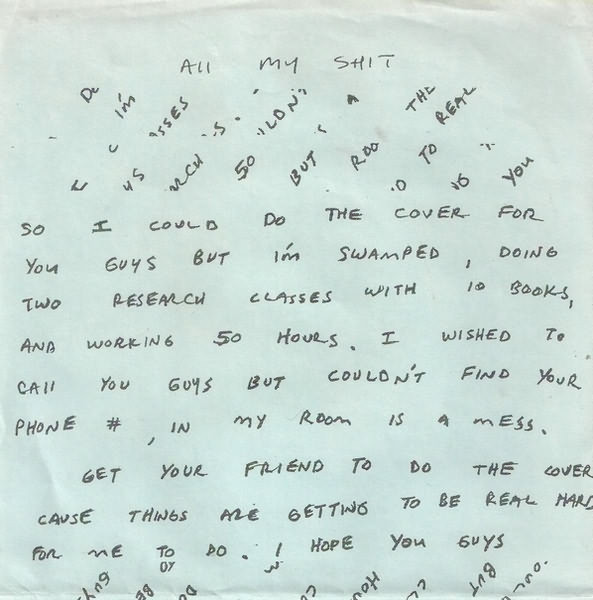 All MY SHIT
I'm THE
REAL
50 BUT TO YOU
SO I COULD DO THE COVER FOR
YOU GUYS BUT I'M SWAMPED, DOING
TWO RESEARCH CLASSES WITH 10 BOOKS,
AND WORKING 50 HOURS. I WISHED TO
CAll YOU GUYS BUT COULDN'T FIND YOUR
PHONE #, IN MY ROOM IS A MESS.
GET YOUR FRIEND TO DO THE COVER
CAUSE THINGS ARE GETTING TO BE REAL HARD
FOR ME TO DO. I HOPE YOU GUYS
BUT